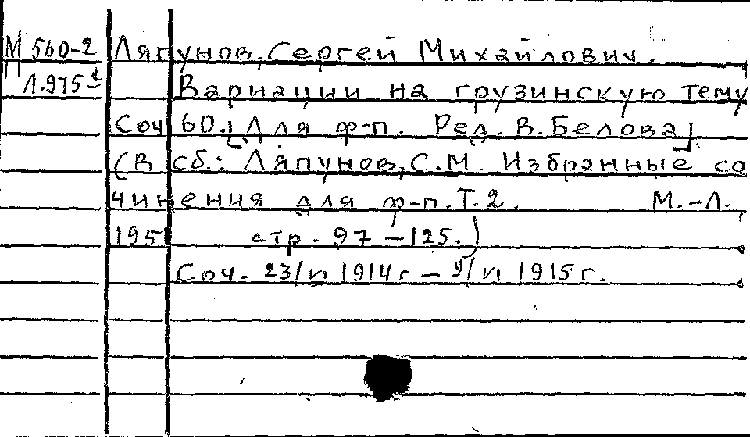 М 560-2 Ляпунов, Сергей Михайлович.
Л.975 Вариации на грузинскую тему
Соч 60. [Для ф-п. Ред. В. Белова]
(В сб.: Ляпунов, С.М. Избранные со
чинения для ф-п. Т.2. М.-Л.,
195 стр. 97-125.)
Соч. 23/ 1914 г - 9/ 1915 г.